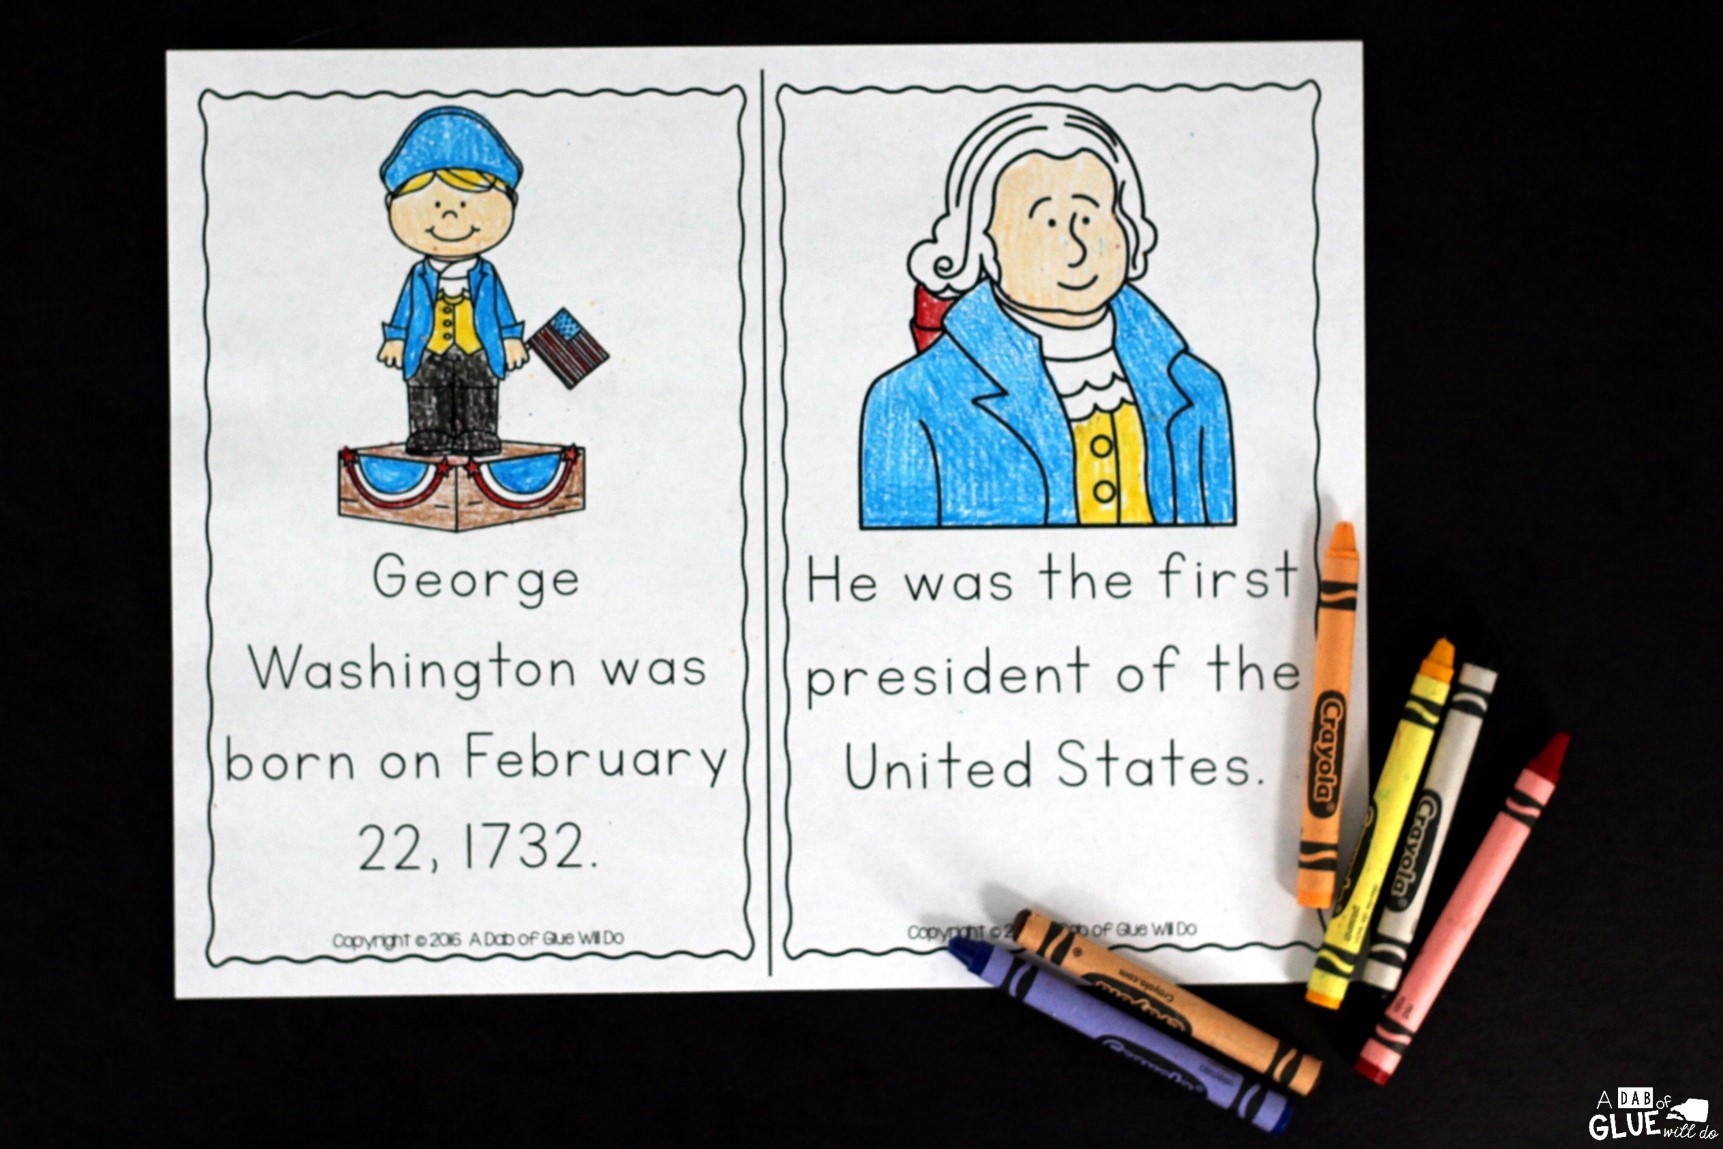 George
Washington was
born on February
22, 1732.
Copyright © 2016 A Dab of Glue Will Do
He was the first
president of the
United States.
Copyright © of Glue Will Do
Crayola
Crayola
Crayola
Crayola.com
A DAB of
GLUE will do